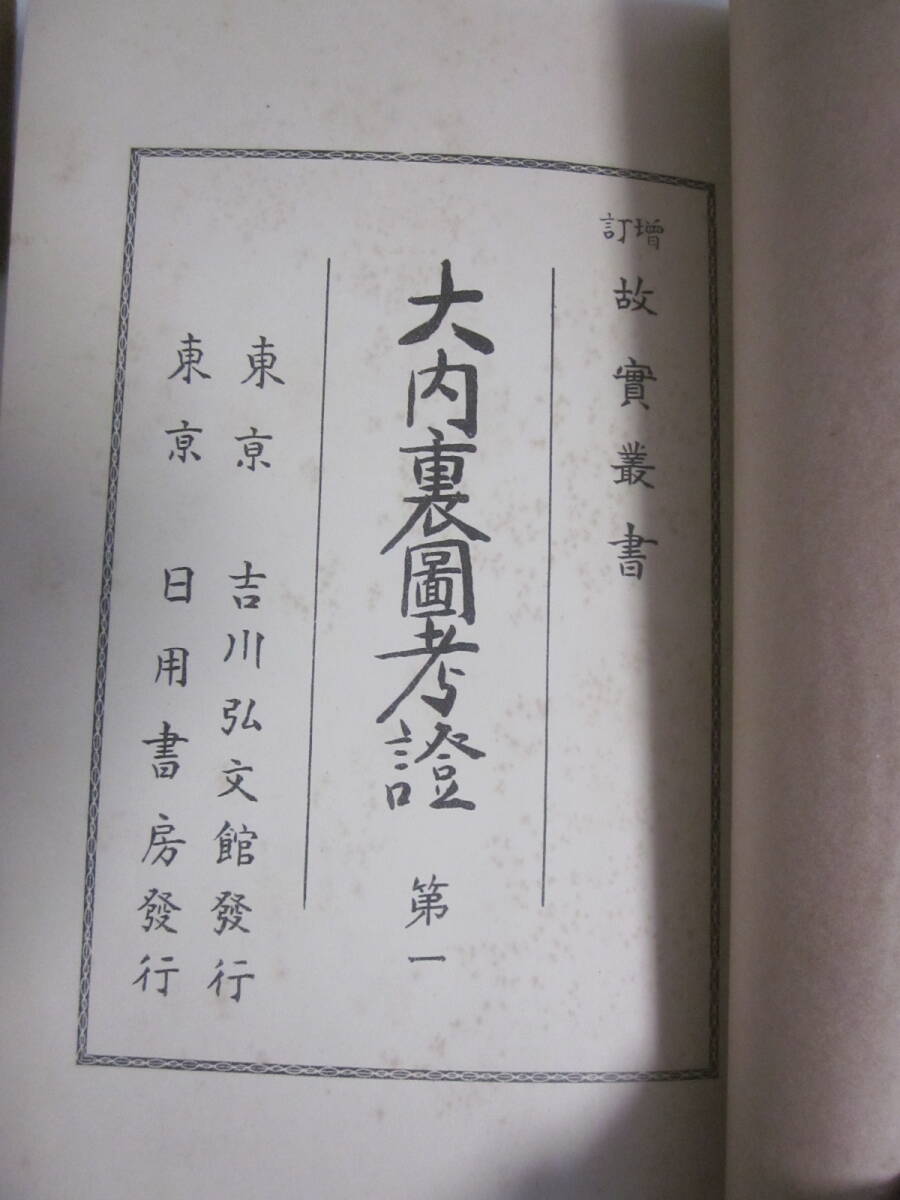 增訂 故實叢書
大内裏圖考證 第一
東亰 吉川弘文館發行
東亰 日用書房發行